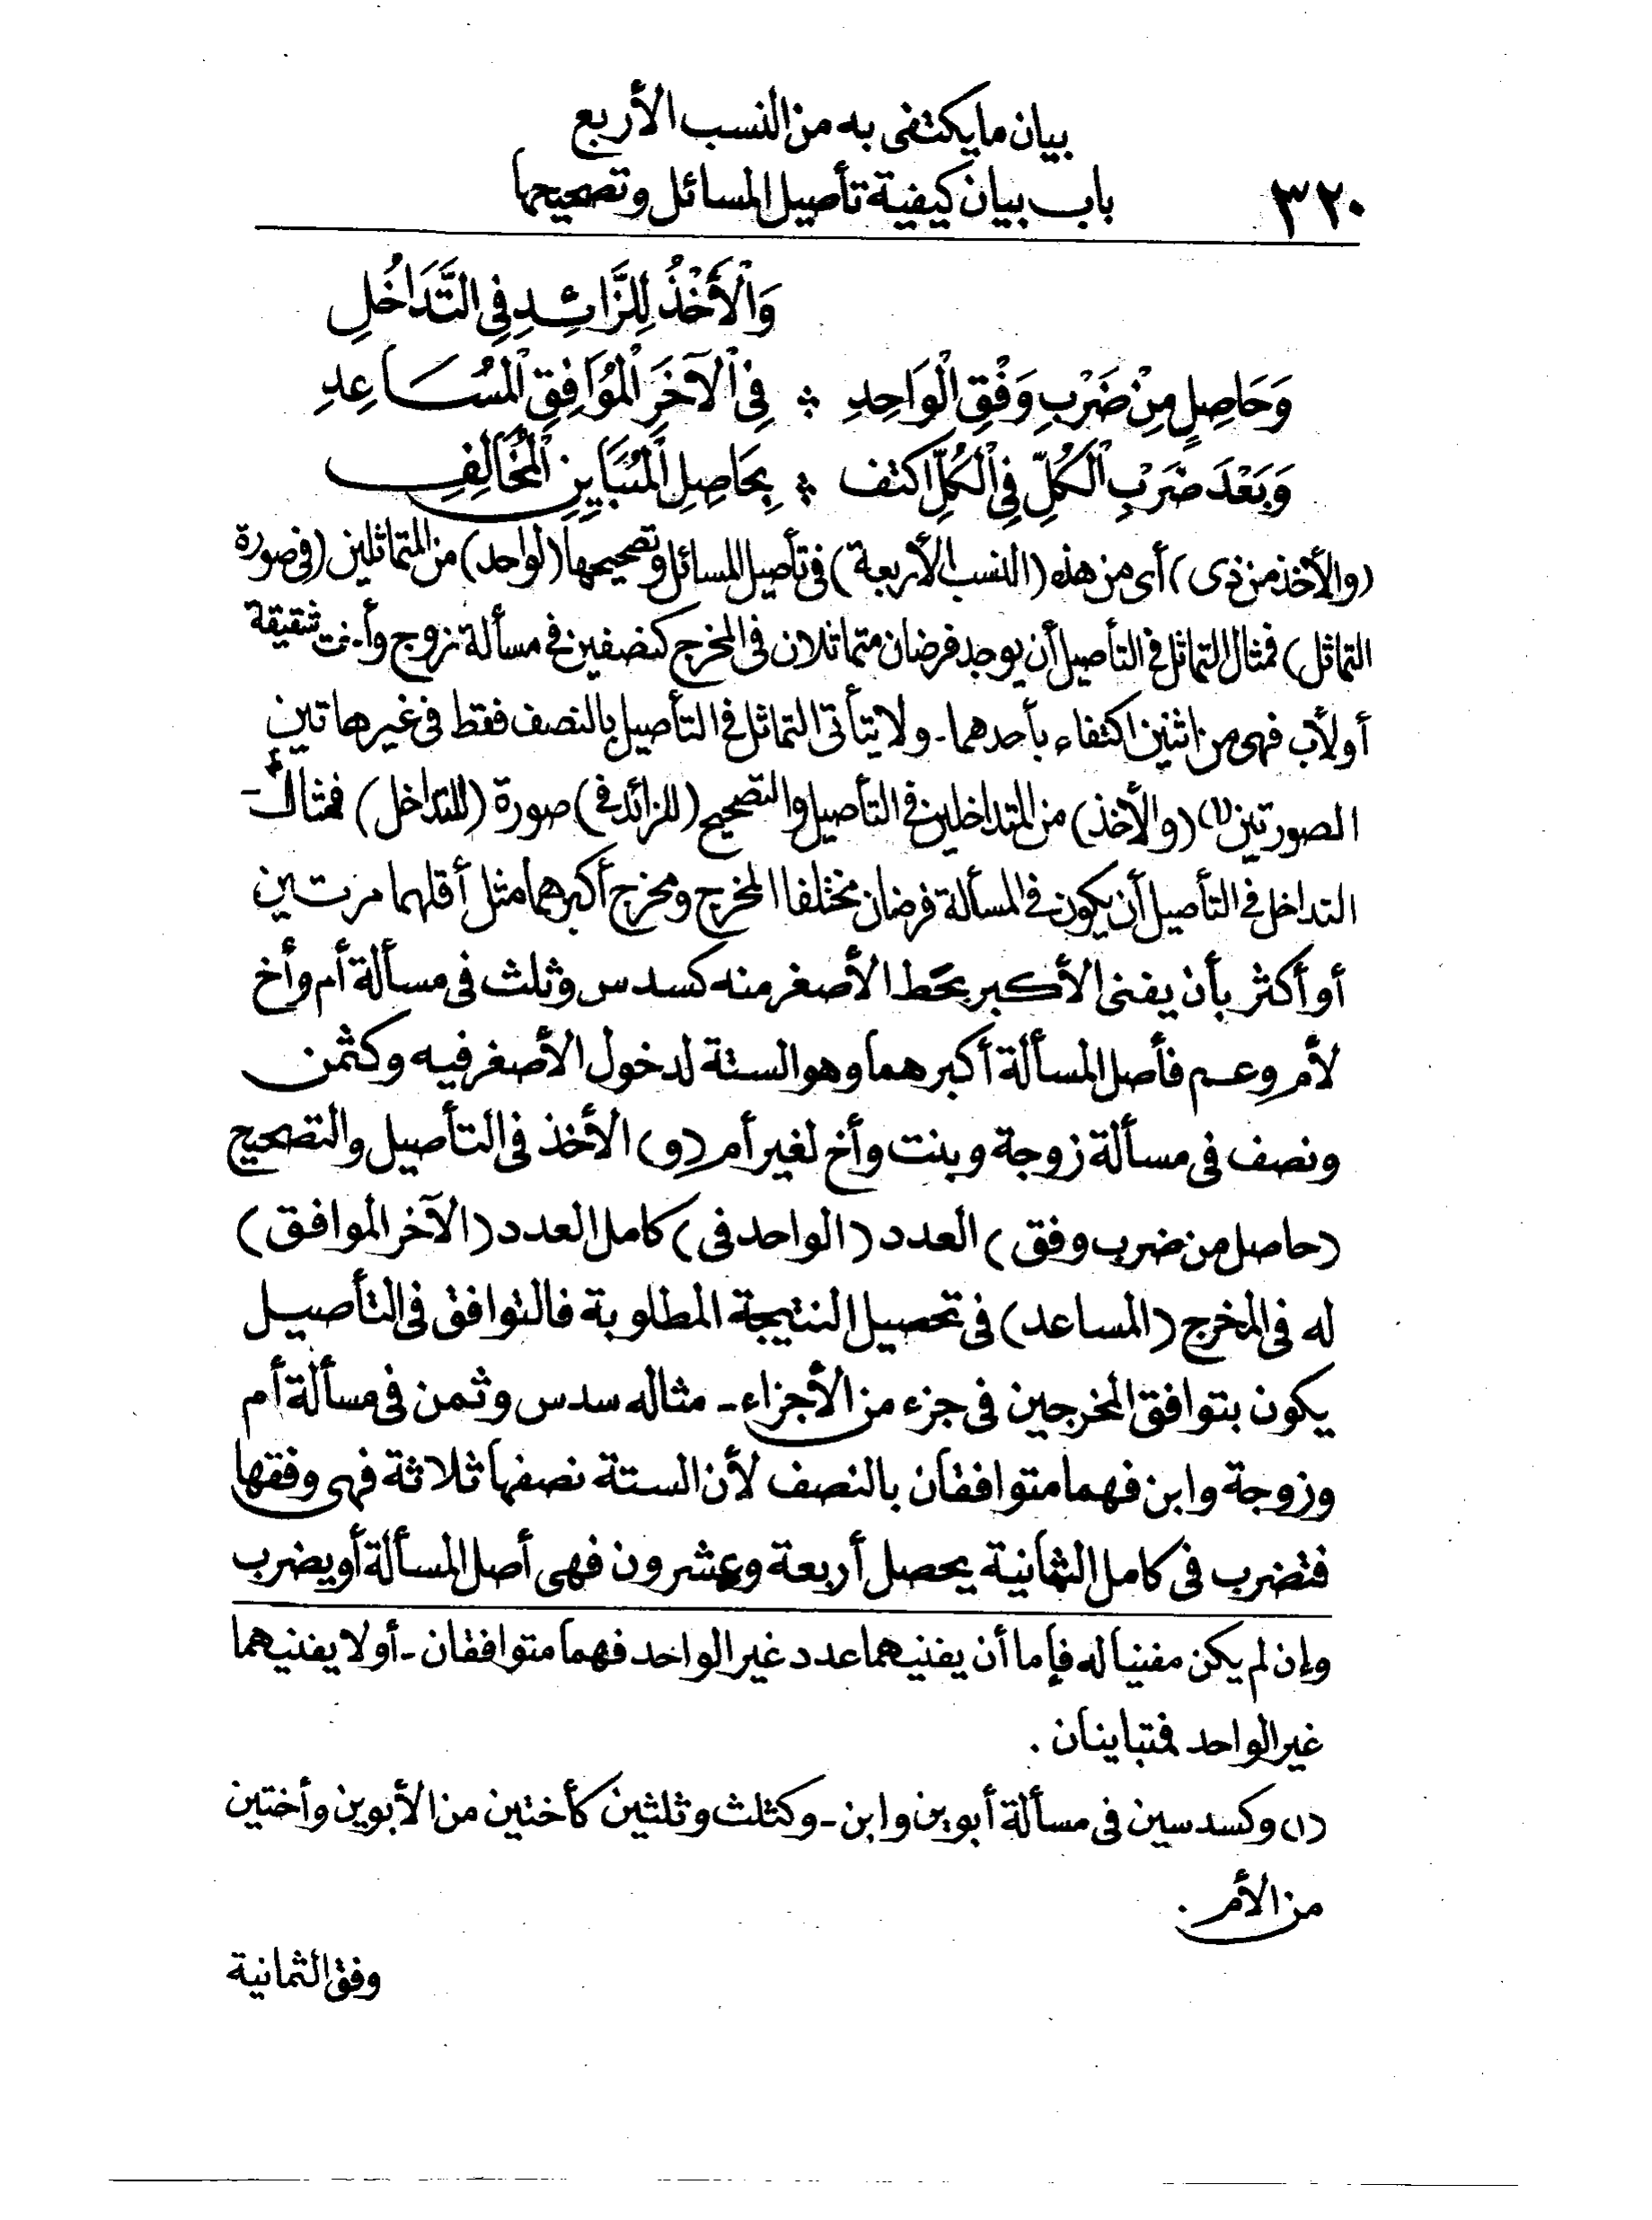 بيان ما يكتفى به من النسب الأربع
٣٢٠ باب بيان كيفية تأصيل المسائل وتصحيحها
وَالْأَخْذُ لِلزَّائِدِ فِي التَّدَاخُلِ
وَحَاصِلٍ مِنْ ضَرْبِ وَفْقِ الْوَاحِدِ ❊ فِي الْآخَرِ الْمُوَافِقِ الْمُسَاعِدِ
وَبَعْدَ ضَرْبِ الْكُلِّ فِي الْكُلِّ اكتف ❊ بِحَاصِلِ الْمُبَايِنِ الْمُخَالِفِ
(والأخذ من ذى) أى من هذه (النسب الأربعة) فى تأصيل المسائل وتصحيحها (لواحد) من المتماثلين (فى صورة
التماثل) فمثال التماثل فى التأصيل أن يوجد فرضان متماثلان فى المخرج كنصفين فى مسألة زوج وأخت شقيقة
أو لأب فهى من اثنين اكتفاء بأحدهما - ولا يتأتى التماثل فى التأصيل بالنصف فقط فى غير هاتين
الصورتين (١) (والأخذ) من المتداخلين فى التأصيل والتصحيح (للزائد فى) صورة (التداخل) فمثال
التداخل فى التأصيل أن يكون فى المسألة فرضان مختلفا المخرج ومخرج أكبرهما مثل أقلهما مرتين
أو أكثر بأن يفنى الأكبر بحَط الأصغر منه كسدس وثلث فى مسألة أم وأخ
لأم وعم فأصل المسألة أكبرهما وهو الستة لدخول الأصغر فيه وكثمن
ونصف فى مسألة زوجة وبنت وأخ لغير أم (و) الأخذ فى التأصيل والتصحيح
(حاصل من ضرب وفق) العدد (الواحد فى) كامل العدد (الآخر الموافق)
له فى المخرج (المساعد) فى تحصيل النتيجة المطلوبة فالتوافق فى التأصيل
يكون بتوافق المخرجين فى جزء من الأجزاء - مثاله سدس وثمن فى مسألة أم
وزوجة وابن فهما متوافقان بالنصف لأن الستة نصفها ثلاثة فهى وفقها
فتضرب فى كامل الثمانية يحصل أربعة وعشرون فهى أصل المسألة أو يضرب
وإن لم يكن مفنيا له فإما أن يفنيهما عدد غير الواحد فهما متوافقان - أو لا يفنيهما
غير الواحد فمتباينان .
(١) وكسدسين فى مسألة أبوين وابن - وكثلث وثلثين كأختين من الأبوين وأختين
من الأم .
وفق الثمانية